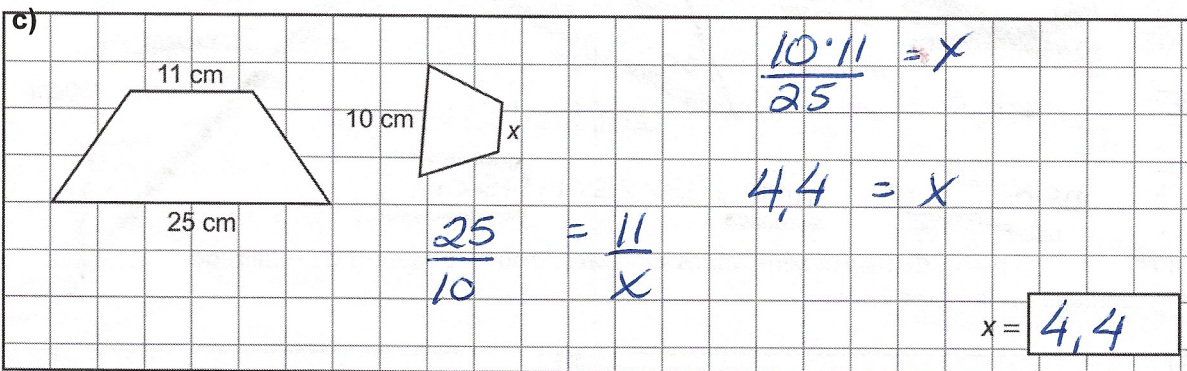 c)
11 cm
25 cm
10 cm
x
25/10 = 11/x
10·11/25 = x
4,4 = x
x = 4,4